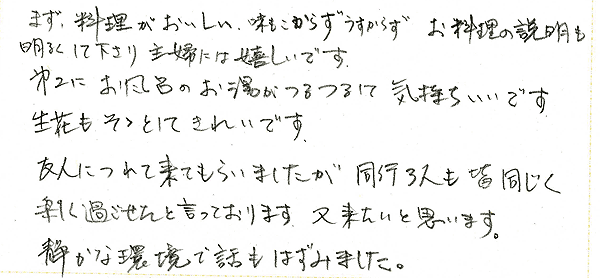 まず、料理がおいしい、味もこからずうすからず お料理の説明も
明るくして下さり 主婦には嬉しいです。
第2に お風呂のお湯がつるつるして 気持ちいいです
生花も そっとして きれいです。
友人につれて来てもらいましたが 同行3人も皆同じく
楽しく過ごせたと言っております 又来たいと思います。
静かな環境で話もはずみました。